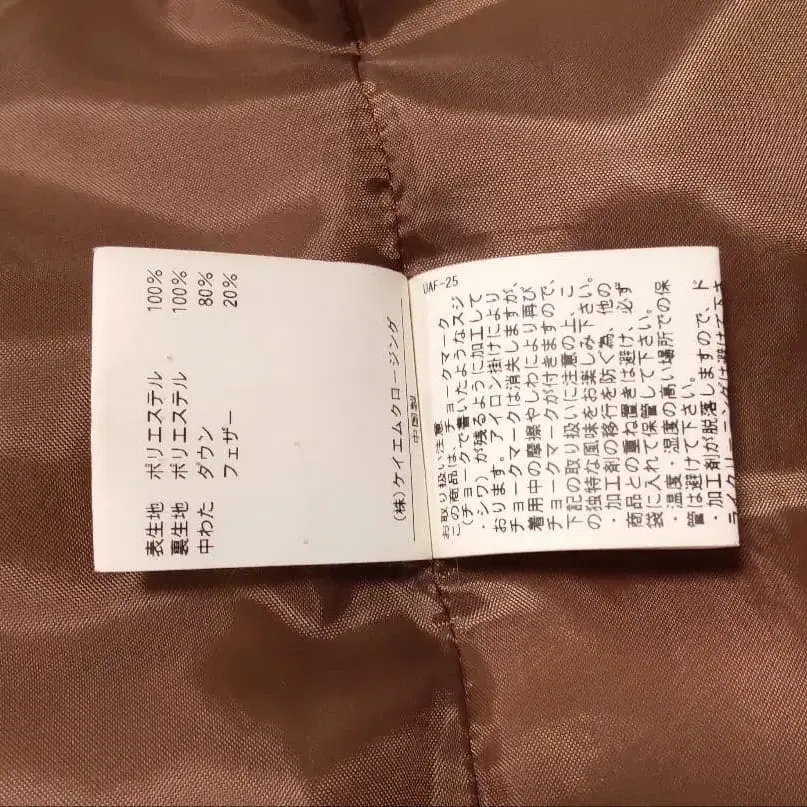 表生地 ポリエステル 100%
裏生地 ポリエステル 100%
中わた ダウン 80%
フェザー 20%
(株)ケイエムクロージング
中国製
UAF-25
お取り扱い注意
この商品は、チョークマーク
(チョークで書いたようなスジ
・シワ)が残るように加工して
おります。アイロン掛けにより
チョークマークは消失しますが、
着用中の摩擦やしわにより再び
チョークマークが付きますので、
下記の取り扱いに注意の上、こ
の独特な風味をお楽しみ下さい。
・加工剤の移行を防ぐ為、他の
商品との重ね置きは避け、必ず
袋に入れて保管して下さい。
・温度・湿度の高い場所での保
管は避けて下さい。
・加工剤が脱落しますので、ド
ライクリーニングは避けて下さ